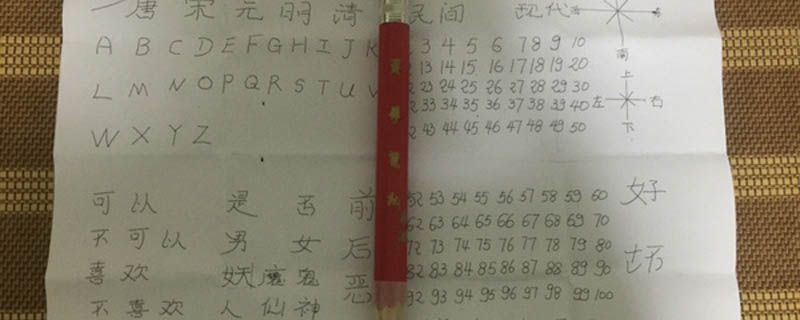 唐 宋 元 明 清 民间 现代
A B C D E F G H I J K 3 4 5 6 7 8 9 10
南
L M N O P Q R S T U V 13 14 15 16 17 18 19 20
上
23 24 25 26 27 28 29 30
33 34 35 36 37 38 39 40 左 右
W X Y Z 43 44 45 46 47 48 49 50 下
可以 是 否 前 52 53 54 55 56 57 58 59 60 好
62 63 64 65 66 67 68 69 70
不可以 男 女 后 73 74 75 76 77 78 79 80 坏
喜欢 妖 魔 鬼 恶 82 83 84 85 86 87 88 89 90
不喜欢 人 仙 神 92 93 94 95 96 97 98 99 100